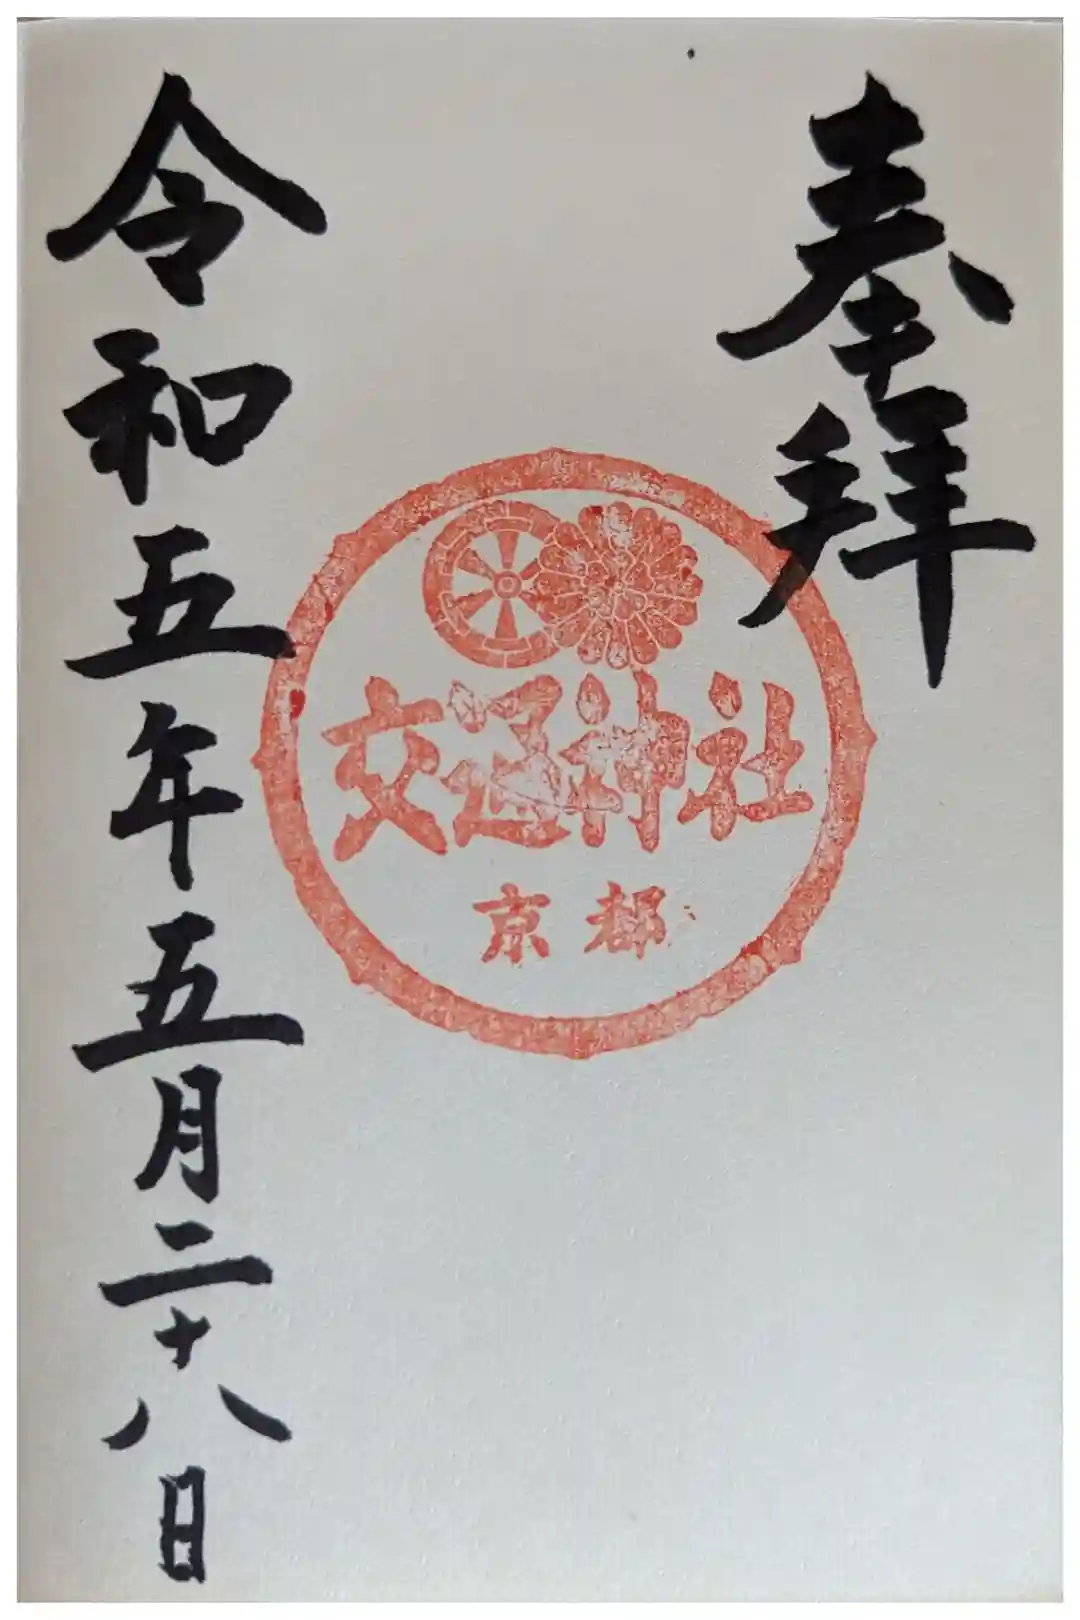 奉拝
交通神社
京都
令和五年五月二十八日